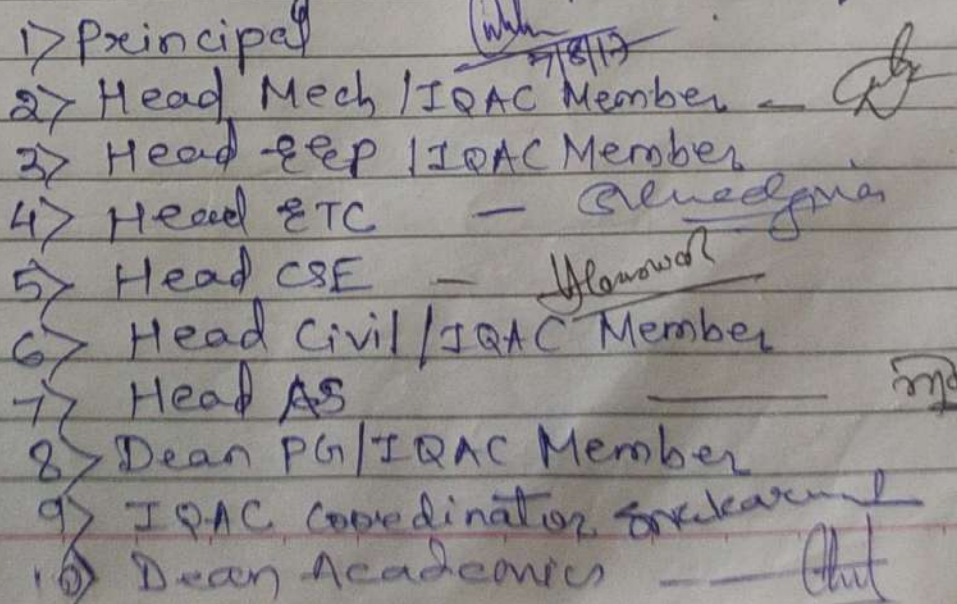 1> Principal 7/8/17
2> Head Mech / IQAC Member -
3> Head EEP / IQAC Member
4> Head ETC -
5> Head CSE -
6> Head Civil / IQAC Member
7> Head AS -
8> Dean PG / IQAC Member
9> IQAC Coordinator
10> Dean Academics -